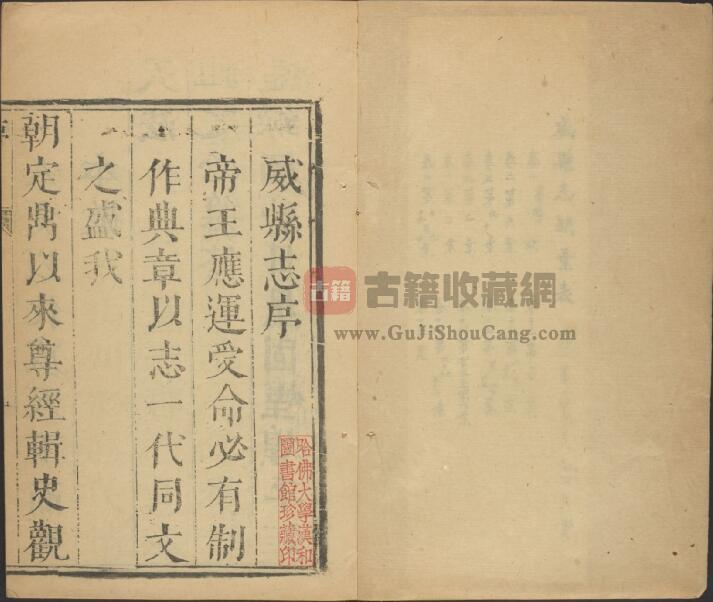 威縣志序
帝王應運受命必有制
作典章以志一代同文
之盛我
朝定鼎以來尊經輯史觀
哈佛大學漢和
圖書館珍藏印
古籍
古籍收藏網
www.GuJiShouCang.com